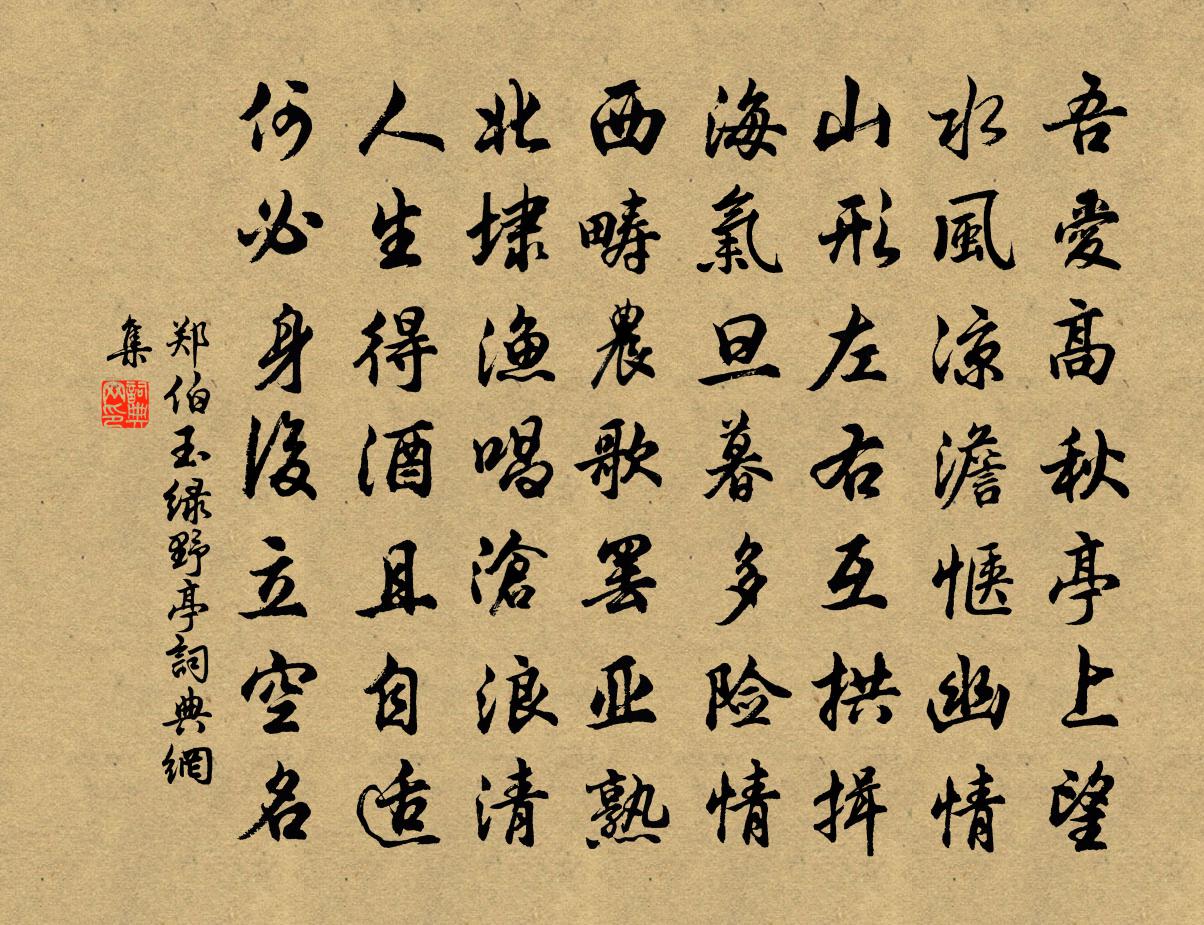 吾愛高秋亭上望
水風凉澹愜幽情
山形左右互拱揖
海氣旦暮多險情
西疇農歌罢亚熟
北埭漁唱滄浪清
人生得酒且自适
何必身後立空名
郑伯玉緑野亭詞典網
集
詞典網印